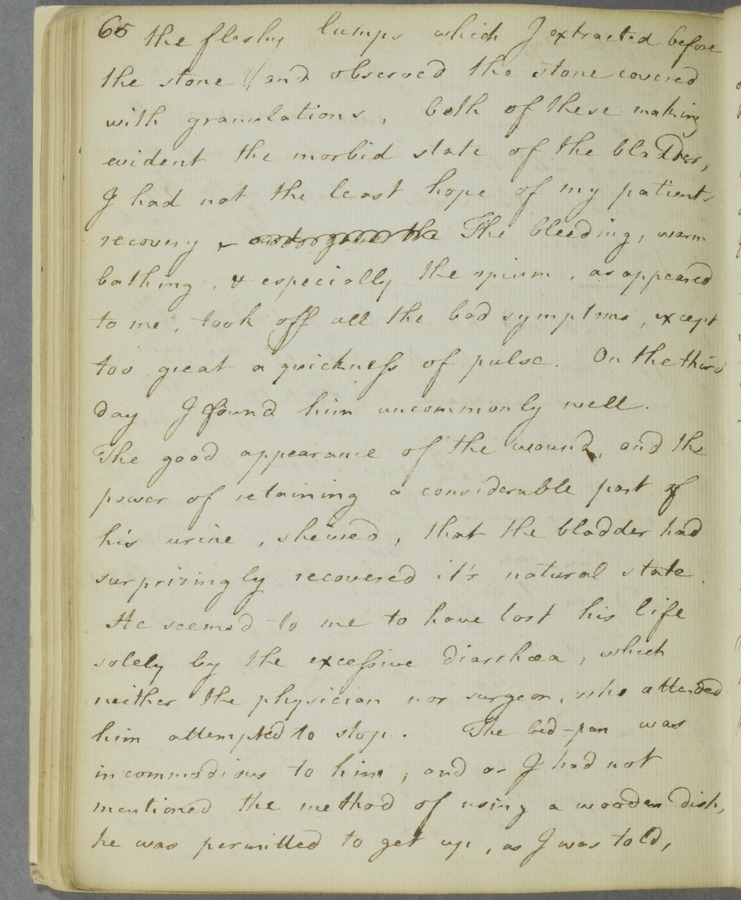 66 the fleshy lumps which I extracted before
the stone, and observed the stone covered
with granulations, both of these making
evident the morbid state of the bladder,
I had not the least hope of my patients
recovery The bleeding, warm
bathing, & especially the opium, as appeared
to me, took off all the bad symptms, except
too great a quickness of pulse. On the third
day I found him uncommonly well.
The good appearance of the wound, and the
power of retaining a considerable part of
his urine, shewed, that the bladder had
surprizingly recovered it's natural state.
He seemed to me to have lost his life
solely by the excessive diarrhœa, which
neither the physician nor surgeon, who attended
him attempted to stop. The bed-pan was
incommodious to him, and as I had not
mentioned the method of using a wooden dish,
he was permitted to get up, as I was told,